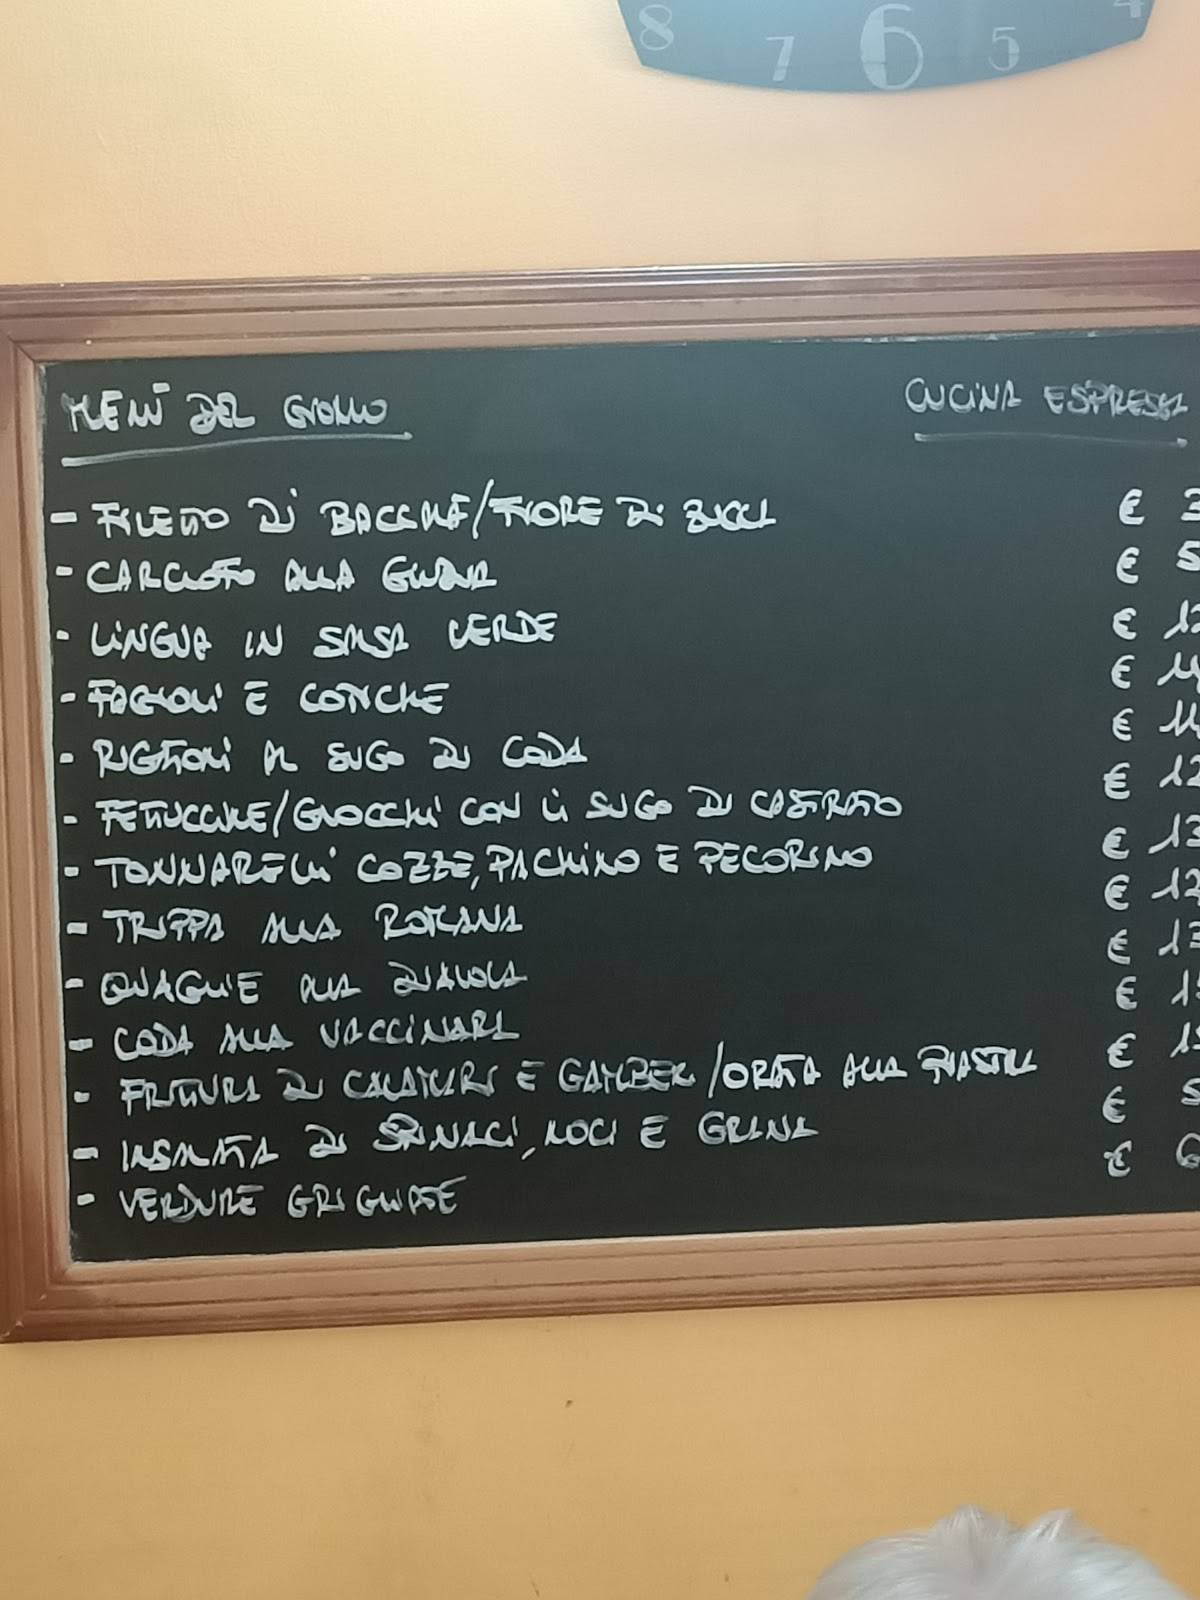 8 7 6 5 4
MENÙ DEL GIORNO CUCINA ESPRESSA
- FILETTO DI BACCALÀ/FIORE DI ZUCCA € 3
- CARCIOFO ALLA GIUDIA € 5
- LINGUA IN SALSA VERDE € 12
- FAGIOLI E COTICHE € 11
- RIGATONI AL SUGO DI CODA € 11
- FETTUCCINE/GNOCCHI CON IL SUGO DI CASTRATO € 12
- TONNARELLI COZZE, PACHINO E PECORINO € 13
- TRIPPA ALLA ROMANA € 12
- QUAGLIE ALLA DIAVOLA € 13
- CODA ALLA VACCINARA € 1
- FRITTURA DI CALAMARI E GAMBERI/ORATA ALLA PIASTRA € 1
- INSALATA DI SPINACI, NOCI E GRANA € 5
- VERDURE GRIGLIATE € 6